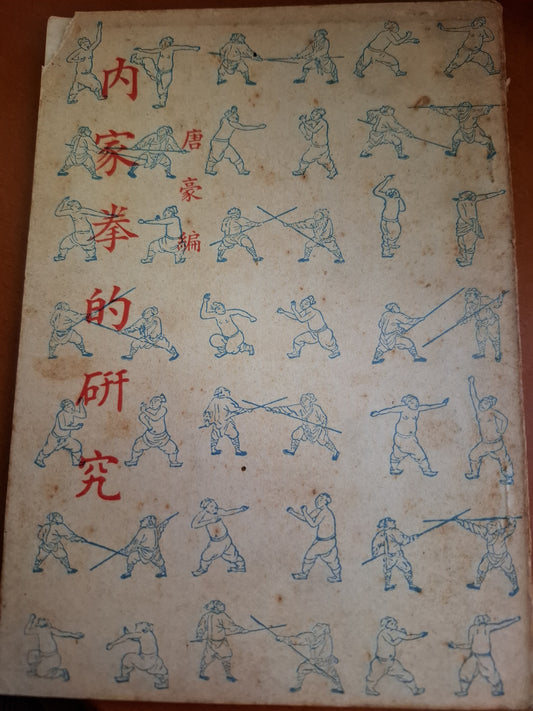 内家拳的研究
唐豪編